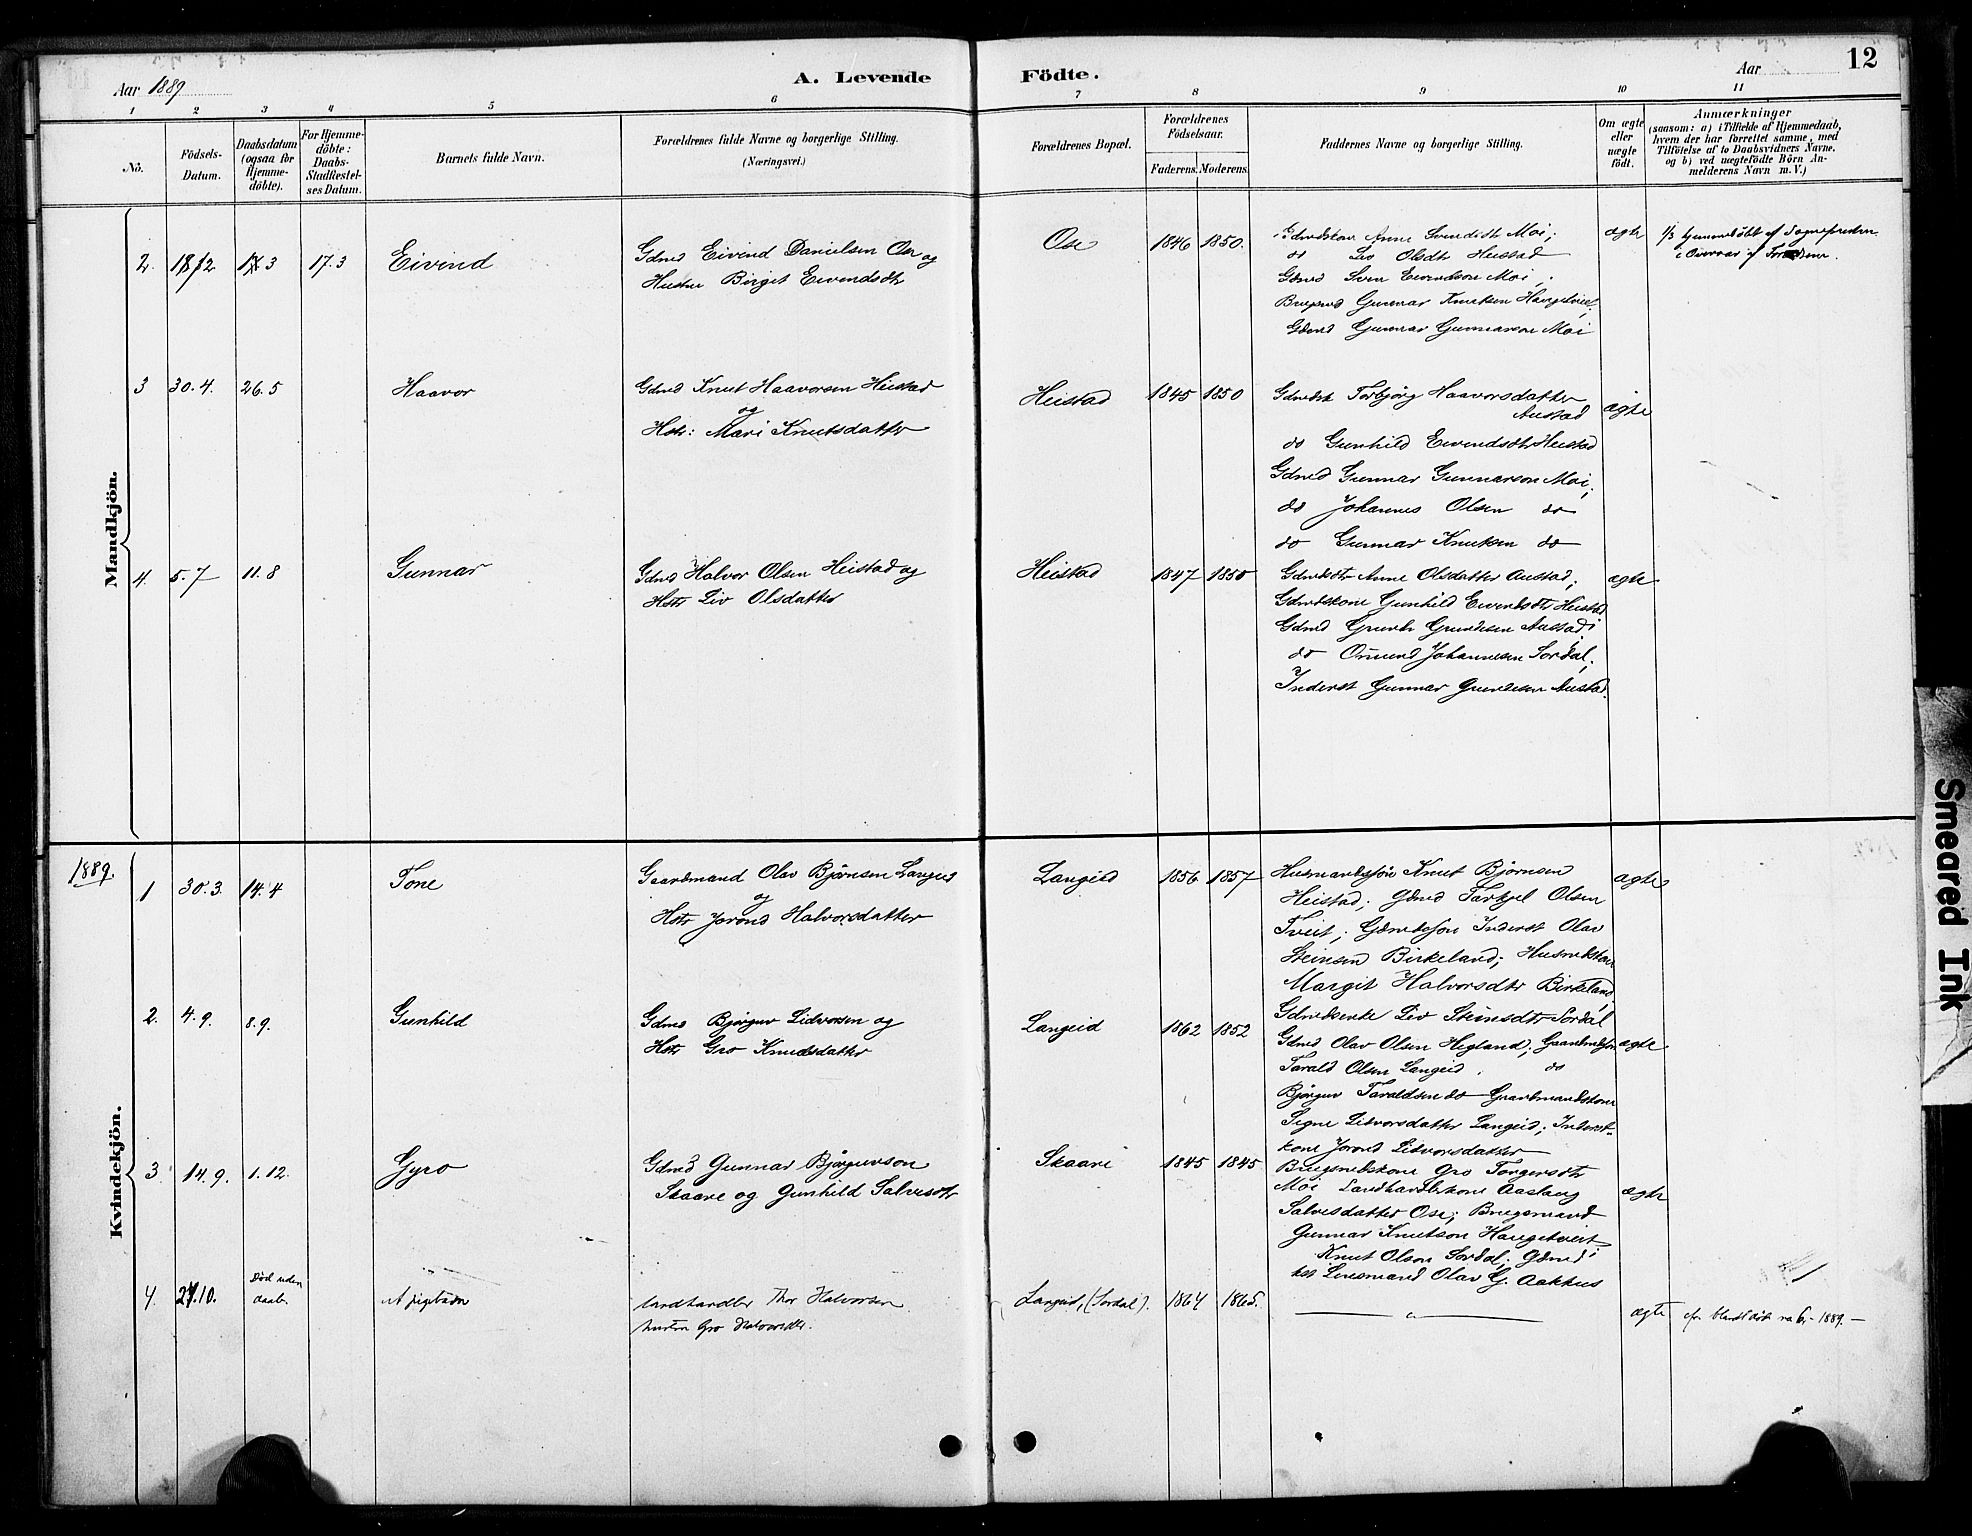 Aar 1889
A. Levende Födte.
Aar
12
1 2 3 4 5 6 7 8 9 10 11
No.
Födsels-Datum.
Daabsdatum (ogsaa for Hjemme-döbte).
For Hjemme-döbte: Daabs-Stadfestel-ses Datum.
Barnets fulde Navn.
Forældrenes fulde Navne og borgerlige Stilling.
(Næringsvei.)
Forældrenes Bopæl.
Forældrenes Födselsaar.
Faderens. Moderens.
Faddernes Navne og borgerlige Stilling.
Om ægte eller uægte födt.
Anmærkninger
(saasom: a) i Tilfælde af Hjemmedaab,
hvem der har forrettet samme, med
Tilföielse af to Daabsvidners Navne.
og b) ved uægtefödte Börn An-
melderens Navn m. V.)
Mandkjön.
2. 17.3 Eivind
Gdmd Eivind Danielsen Ose og
Hustru Birgit Eivendsdtr
Ose 1846 1850.
Gdmdskone Anne Svendsdtr Moi;
do Liv Olsdtr Heistad
Gdmd Sven Eivendson Moi;
Brugsmd Gunnar Knutsen Haugetveit,
Gdmd Gunnar Gunnarson Moi
ægte
1/3 hjemmedöbt af Sognepresten
i Overvær af Forældrene.
3 30.4. 26.5 Haavor
Gdmd Knut Haavorsen Heistad
og
Hstr: Mari Knutsdatter
Heistad 1845 1850
Torbjörg Haavorsdatter
Austad
do Gunhild Eivendsdtr Heistad
Gdmd Gunnar Gunnarson Moi,
do Johannes Olsen do
do Gunnar Knutsen do
ægte
4. 5.7 11.8 Gunnar
Gdmd Halvor Olsen Heistad og
Hstr Liv Olsdatter
Heistad 1847 1850
Anne Olsdatter Austad;
Gdmdskone Gunhild Eivendsdtr Heistad
Gdmd Austad;
do Omund Johannesen Sordal;
Inderst Gunnar Austad.
ægte
1889.
Kvindekjön.
1 30.3. 14.4 Tone
Gaardmand Olav Bjørnsen Langeid
og
Hstr Jorond Halvorsdatter
Langeid 1856 1857
Husmandssön Knut Bjørnsen
Heistad; Gdmd Tarkjel Olsen
Tveit; Gdmdssøn Inderst Olav
Steinsen Birkeland; Husmdskone
Margit Halvorsdtr Birkeland
ægte
2. 4.9. 8.9. Gunhild
Gdmd Bjørguv Lidvorsen og
Hstr Gro Knudsdatter
Langeid 1862 1852
Gdmdsenke Liv Steinsdtr Sordal
Gdmd Olav Olsen Hegland; Gaardmdssøn
Tarald Olsen Langeid. do
Bjørguv Taraldsen do Gaardmandskone
Signe Lidvorsdatter Langeid; Inderst-
kone Jorond Lidvorsdatter
ægte
3. 14.9. 1.12. Gyro
Gdmd Gunnar Bjørguvson
Skaare og Gunhild Salvesdtr
Skaare 1845 1845
Brugsmdskone Gro Torgersdtr
Moi Landhandlerkone Aaslaug
Salvesdatter Ose; Brugsmand
Gunnar Knutson Haugetveit
Knut Olson Sordal; Gdmd
Lensmand Olav G. Aakhus
ægte
4. 27.10. Død uden daab. et pigebarn
landhandler Thor Halvorsen
hustru Gro
Langeid, (Sordal). 1864 1865.
ægte
cfr. blandt døde no 6.- 1889.-
Smeared Ink